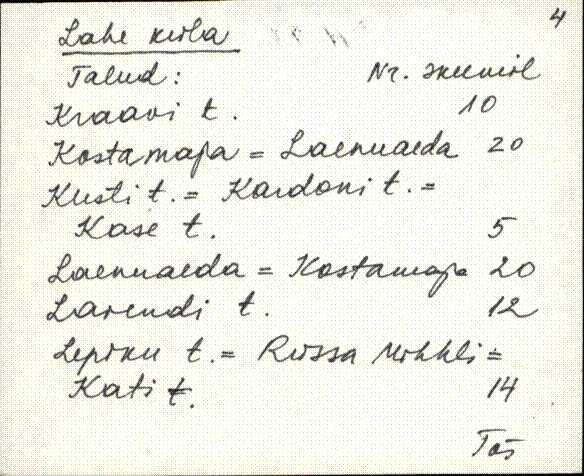 4
Lahe küla
Talud: Nr. skeemil
Kraavi t. 10
Kostamapa = Laenuaeda 20
Kusti t. = Kardoni t. =
Kase t. 5
Laenuaeda = Kostamapa 20
Larendi t. 12
Lepiku t. = Russa Mihkli =
Kati t. 14